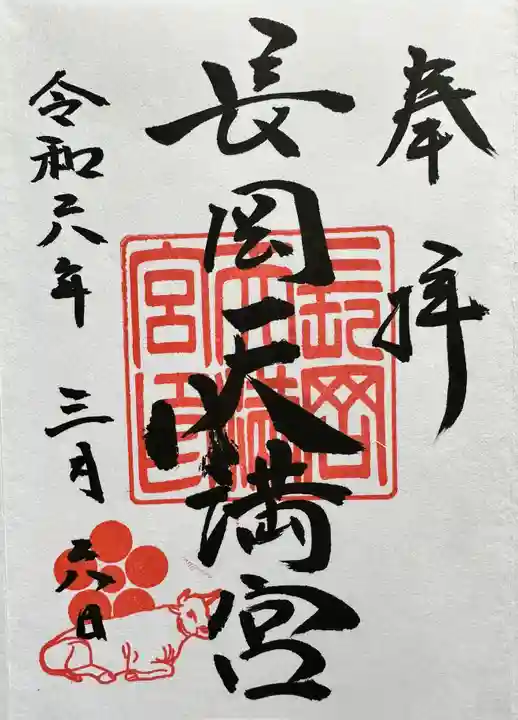 奉拝
長岡天満宮
長岡天満宮印
令和六年 三月 六日